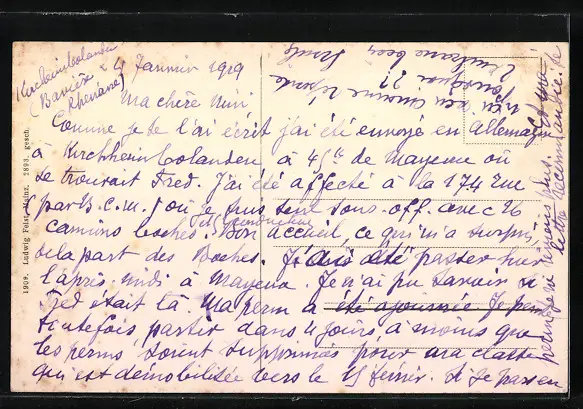 Kirchheimbolanden
(Bavière
Rhénane)
4 Janvier 1919
Ma chère Mimi,
Comme je te l'ai écrit j'ai été envoyé en Allemagne
à Kirchheimbolanden à 45 km de Mayence où
se trouvait Fred. J'ai été affecté à la 174 RUE
(par B.C.M.) où je suis seul sous-off. avec 26
camions boches. Bon accueil, ce qui m'a surpris,
de la part des Boches. J'ai été passer hier
l'après-midi à Mayence. Je n'ai pu savoir si
Fred était là. Ma perm a été ajournée Je pense
toutefois partir dans 4 jours, à moins que
les perms soient supprimées pour ma classe
qui est démobilisée vers le 15 février. Si je pars en
perm je ne réponds plus.
lettre recommandée de
n'a eu aucune réponse
pourquoi ??
1909. Ludwig Feist, Mainz. 2893. gesch.